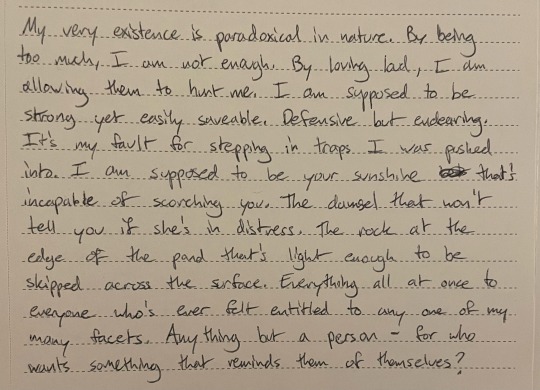 My very existence is paradoxical in nature. By being
too much, I am not enough. By loving loud, I am
allowing them to hunt me. I am supposed to be
strong yet easily saveable. Defensive but endearing.
It's my fault for stepping in traps I was pushed
into. I am supposed to be your sunshine that's
incapable of scorching you. The damsel that won't
tell you if she's in distress. The rock at the
edge of the pond that's light enough to be
skipped across the surface. Everything all at once to
everyone who's ever felt entitled to any one of my
many facets. Anything but a person - for who
wants something that reminds them of themselves?